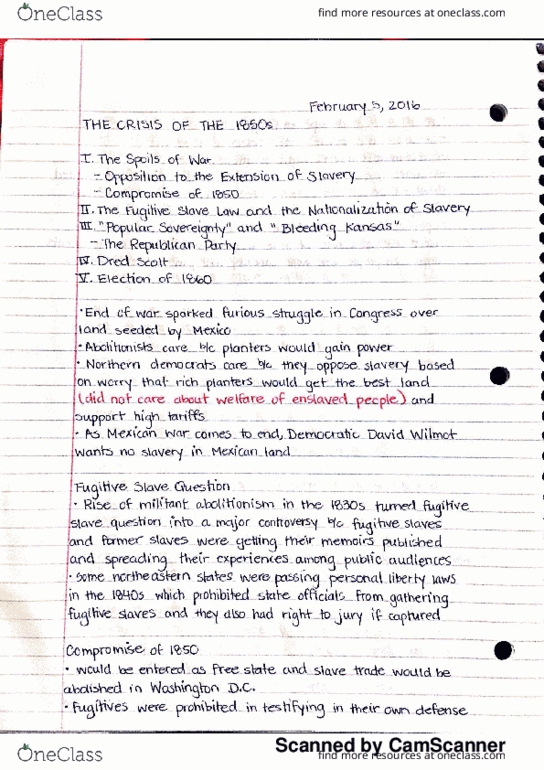 OneClass
find more resources at oneclass.com
February 5, 2016
THE CRISIS OF THE 1850s
I. The Spoils of War
- Opposition to the Extension of Slavery
- Compromise of 1850
II. The Fugitive Slave Law and the Nationalization of Slavery
III. "Popular Sovereignty" and "Bleeding Kansas"
- The Republican Party
IV. Dred Scott
V. Election of 1860
· End of war sparked furious struggle in Congress over
land seeded by Mexico
· Abolitionists care b/c planters would gain power
· Northern democrats care b/c they oppose slavery based
on worry that rich planters would get the best land
(did not care about welfare of enslaved people) and
support high tariffs
· As Mexican War comes to end, Democratic David Wilmot
wants no slavery in Mexican land
Fugitive Slave Question
· Rise of militant abolitionism in the 1830s turned fugitive
slave question into a major controversy b/c fugitive slaves
and former slaves were getting their memoirs published
and spreading their experiences among public audiences
· some northeastern states were passing personal liberty laws
in the 1840s which prohibited state officials from gathering
fugitive slaves and they also had right to jury if captured
Compromise of 1850
· would be entered as free state and slave trade would be
abolished in Washington D.C.
· Fugitives were prohibited in testifying in their own defense
Scanned by CamScanner
OneClass
find more resources at oneclass.com